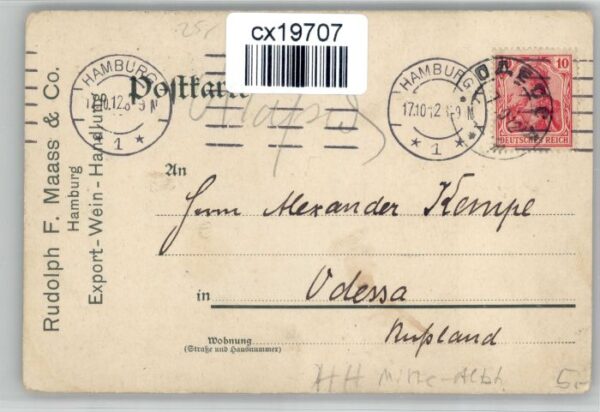 cx19707
Postkarte
Rudolph F. Maass & Co.
Hamburg
Export-Wein-Handlung
HAMBURG
17.10.12. 8-9 N
* 1 *
HAMBURG
17.10.12. 8-9 N
* 1 *
ОДЕССА
10
DEUTSCHES REICH
An
Herrn Alexander Kempe
in Odessa
Rußland
Wohnung
(Straße und Hausnummer)
HH
5.-